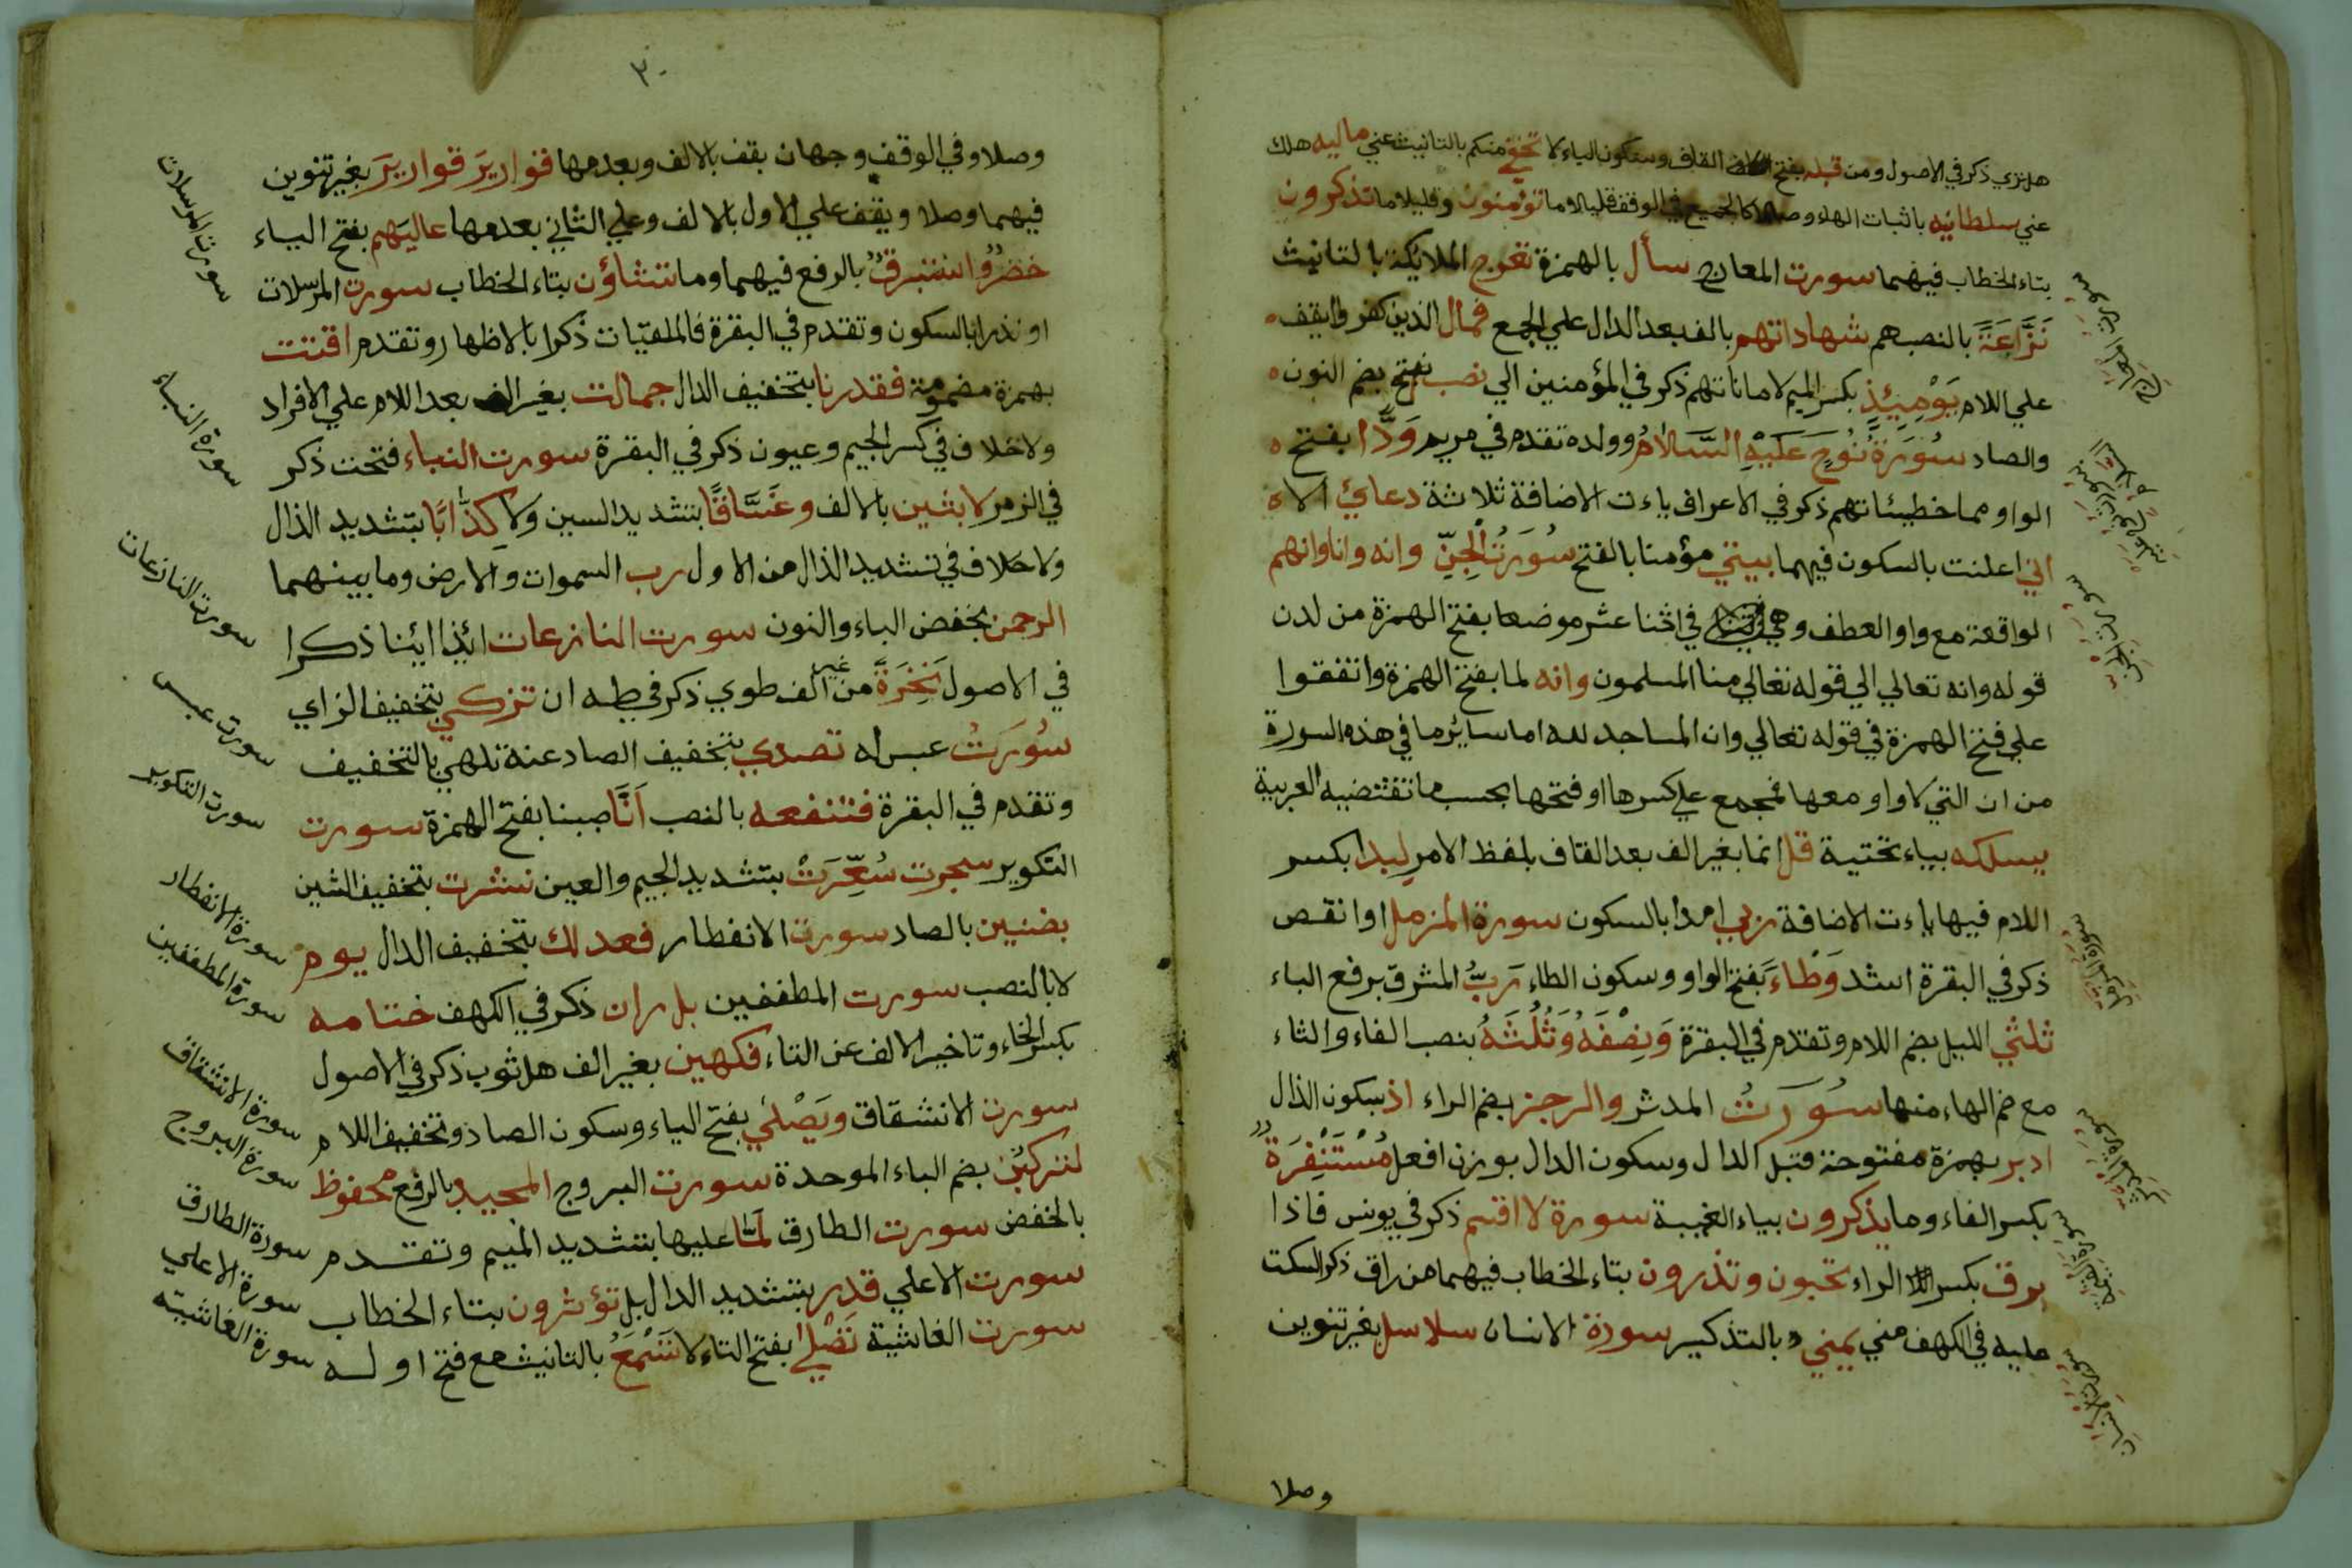 هل ترى ذكر في الاصول ومن قبله بفتح القاف وسكون الياء لا تخفي منكم بالتانيث عني ماليه هلك
عني سلطانيه باثبات الهاء وصلا كالجميع في الوقف قليلا ما تؤمنون وقليلا ما تذكرون
بتاء الخطاب فيهما سورت المعارج سأل بالهمزة تعرج الملايكة بالتانيث
نَزَّاعَةً بالنصب هم شهاداتهم بالف بعد الدال علي الجمع فمال الذين كفروا يقف
علي اللام يَوْمِيئِذٍ بكسر الميم لاماناتهم ذكر في المؤمنين الي نصب بفتح بضم النون
والصاد سُورَةُ نُوحٍ عَلَيْهِ السَّلَامُ وولده تقدم في مريم وَدًّا بفتح
الواو مما خطيئاتهم ذكر في الاعراف ياءت الاضافة ثلاثة دعاي الا
اني اعلنت بالسكون فيهما بيتي مؤمنا بالفتح سُورَتُ الْجِنِّ وانه وانا وانهم
الواقعة مع واو العطف وهي في اثنا عشر موضعا بفتح الهمزة من لدن
قوله وانه تعالي الي قوله تعالي منا المسلمون وانه لما بفتح الهمزة واتفقوا
علي فتح الهمزة في قوله تعالي وان المساجد لله اما سائر ما في هذه السورة
من ان التي لا واو معها فمجمع علي كسرها او فتحها بحسب ما تقتضيه العربية
يسلكه بياء تحتية قل انما بغير الف بعد القاف بلفظ الامر لبدا بكسر
اللام فيها ياءت الاضافة ربي امدا بالسكون سورة المزمل او انقص
ذكر في البقرة اشد وَطْاءً بفتح الواو وسكون الطاء رَبُّ المشرق برفع الباء
ثلثي الليل بضم اللام وتقدم في البقرة وَنِصْفَهُ وَثُلُثَهُ بنصب الفاء والثاء
مع ضم الهاء منها سُورَتُ المدثر والرجز بضم الراء اذ سكون الذال
ادبر بهمزة مفتوحة قبل الدال وسكون الدال بوزن افعل مُسْتَنْفِرَةٌ
بكسر الفاء وما يذكرون بياء الغيبة سورة لا اقسم ذكر في يونس فاذا
برق بكسر الراء تحبون وتذرون بتاء الخطاب فيهما من راق ذكر السكت
عليه في الكهف مني يمني بالتذكير سورة الانسان سلاسل بغير تنوين
وصلا
سورت المعارج
سورت نوح عليه السلام
سورت الجن
سورة المزمل
سورة المدثر
سورة القيمة
سورة الانسان
٣٠
وصلا وفي الوقف وجهان يقف بالالف وبعدها قواريرَ قواريرَ بغير تنوين
فيهما وصلا ويقف علي الاول بالالف وعلي الثاني بعدمها عاليَهم بفتح الياء
خضرٌ واستبرقٌ بالرفع فيهما وما تشاؤن بتاء الخطاب سورت المرسلات
او نذرا بالسكون وتقدم في البقرة فالملقيات ذكرا بالاظهار وتقدم اقتت
بهمزة مضمومة فقدرنا بتخفيف الدال جمالت بغير الف بعد اللام علي الافراد
ولا خلاف في كسر الجيم وعيون ذكر في البقرة سورت النباء فتحت ذكر
في الزمر لابثين بالالف وغَسَّاقًا بتشديد السين ولا كِذَّابًا بتشديد الذال
ولا خلاف في تشديد الذال من الاول رب السموات والارض وما بينهما
الرحمن بخفض الباء والنون سورت النازعات ائذا ائنا ذكرا
في الاصول نَخِرَةً من غير الف طوي ذكر في طه ان تزكي بتخفيف الزاي
سُورَتُ عبس له تصدي بتخفيف الصاد عنه تلهي بالتخفيف
وتقدم في البقرة فتنفعه بالنصب اَنَّا صببنا بفتح الهمزة سورت
التكوير سجرت سُعِّرَتْ بتشديد الجيم والعين نشرت بتخفيف الشين
بضنين بالصاد سورت الانفطار فعدلك بتخفيف الدال يوم
لا بالنصب سورت المطففين بل ران ذكر في الكهف ختامه
بكسر الخاء وتاخير الالف عن التاء فكهين بغير الف هل ثوب ذكر في الاصول
سورت الانشقاق ويَصْلي بفتح الياء وسكون الصاد وتخفيف اللام
لتركبُن بضم الباء الموحدة سورت البروج المجيد بالرفع محفوظ
بالخفض سورت الطارق لَمَّا عليها بتشديد الميم وتقدم
سورت الاعلي قدر بتشديد الدال بل تؤثرون بتاء الخطاب
سورت الغاشية تَصْلي بفتح التاء لا تَسْمَعُ بالتانيث مع فتح اوله
سورت المرسلات
سورة النباء
سورت النازعات
سورت عبس
سورت التكوير
سورة الانفطار
سورة المطففين
سورة الانشقاق
سورة البروج
سورة الطارق
سورة الاعلي
سورة الغاشية